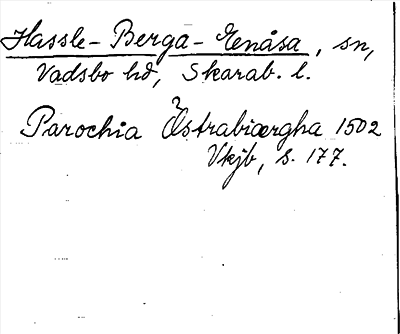 Hassle-Berga-Enåsa, sn,
Vadsbo hd, Skarab. l.
Parochia Östrabiærgha 1502
Vkjb, s. 177.